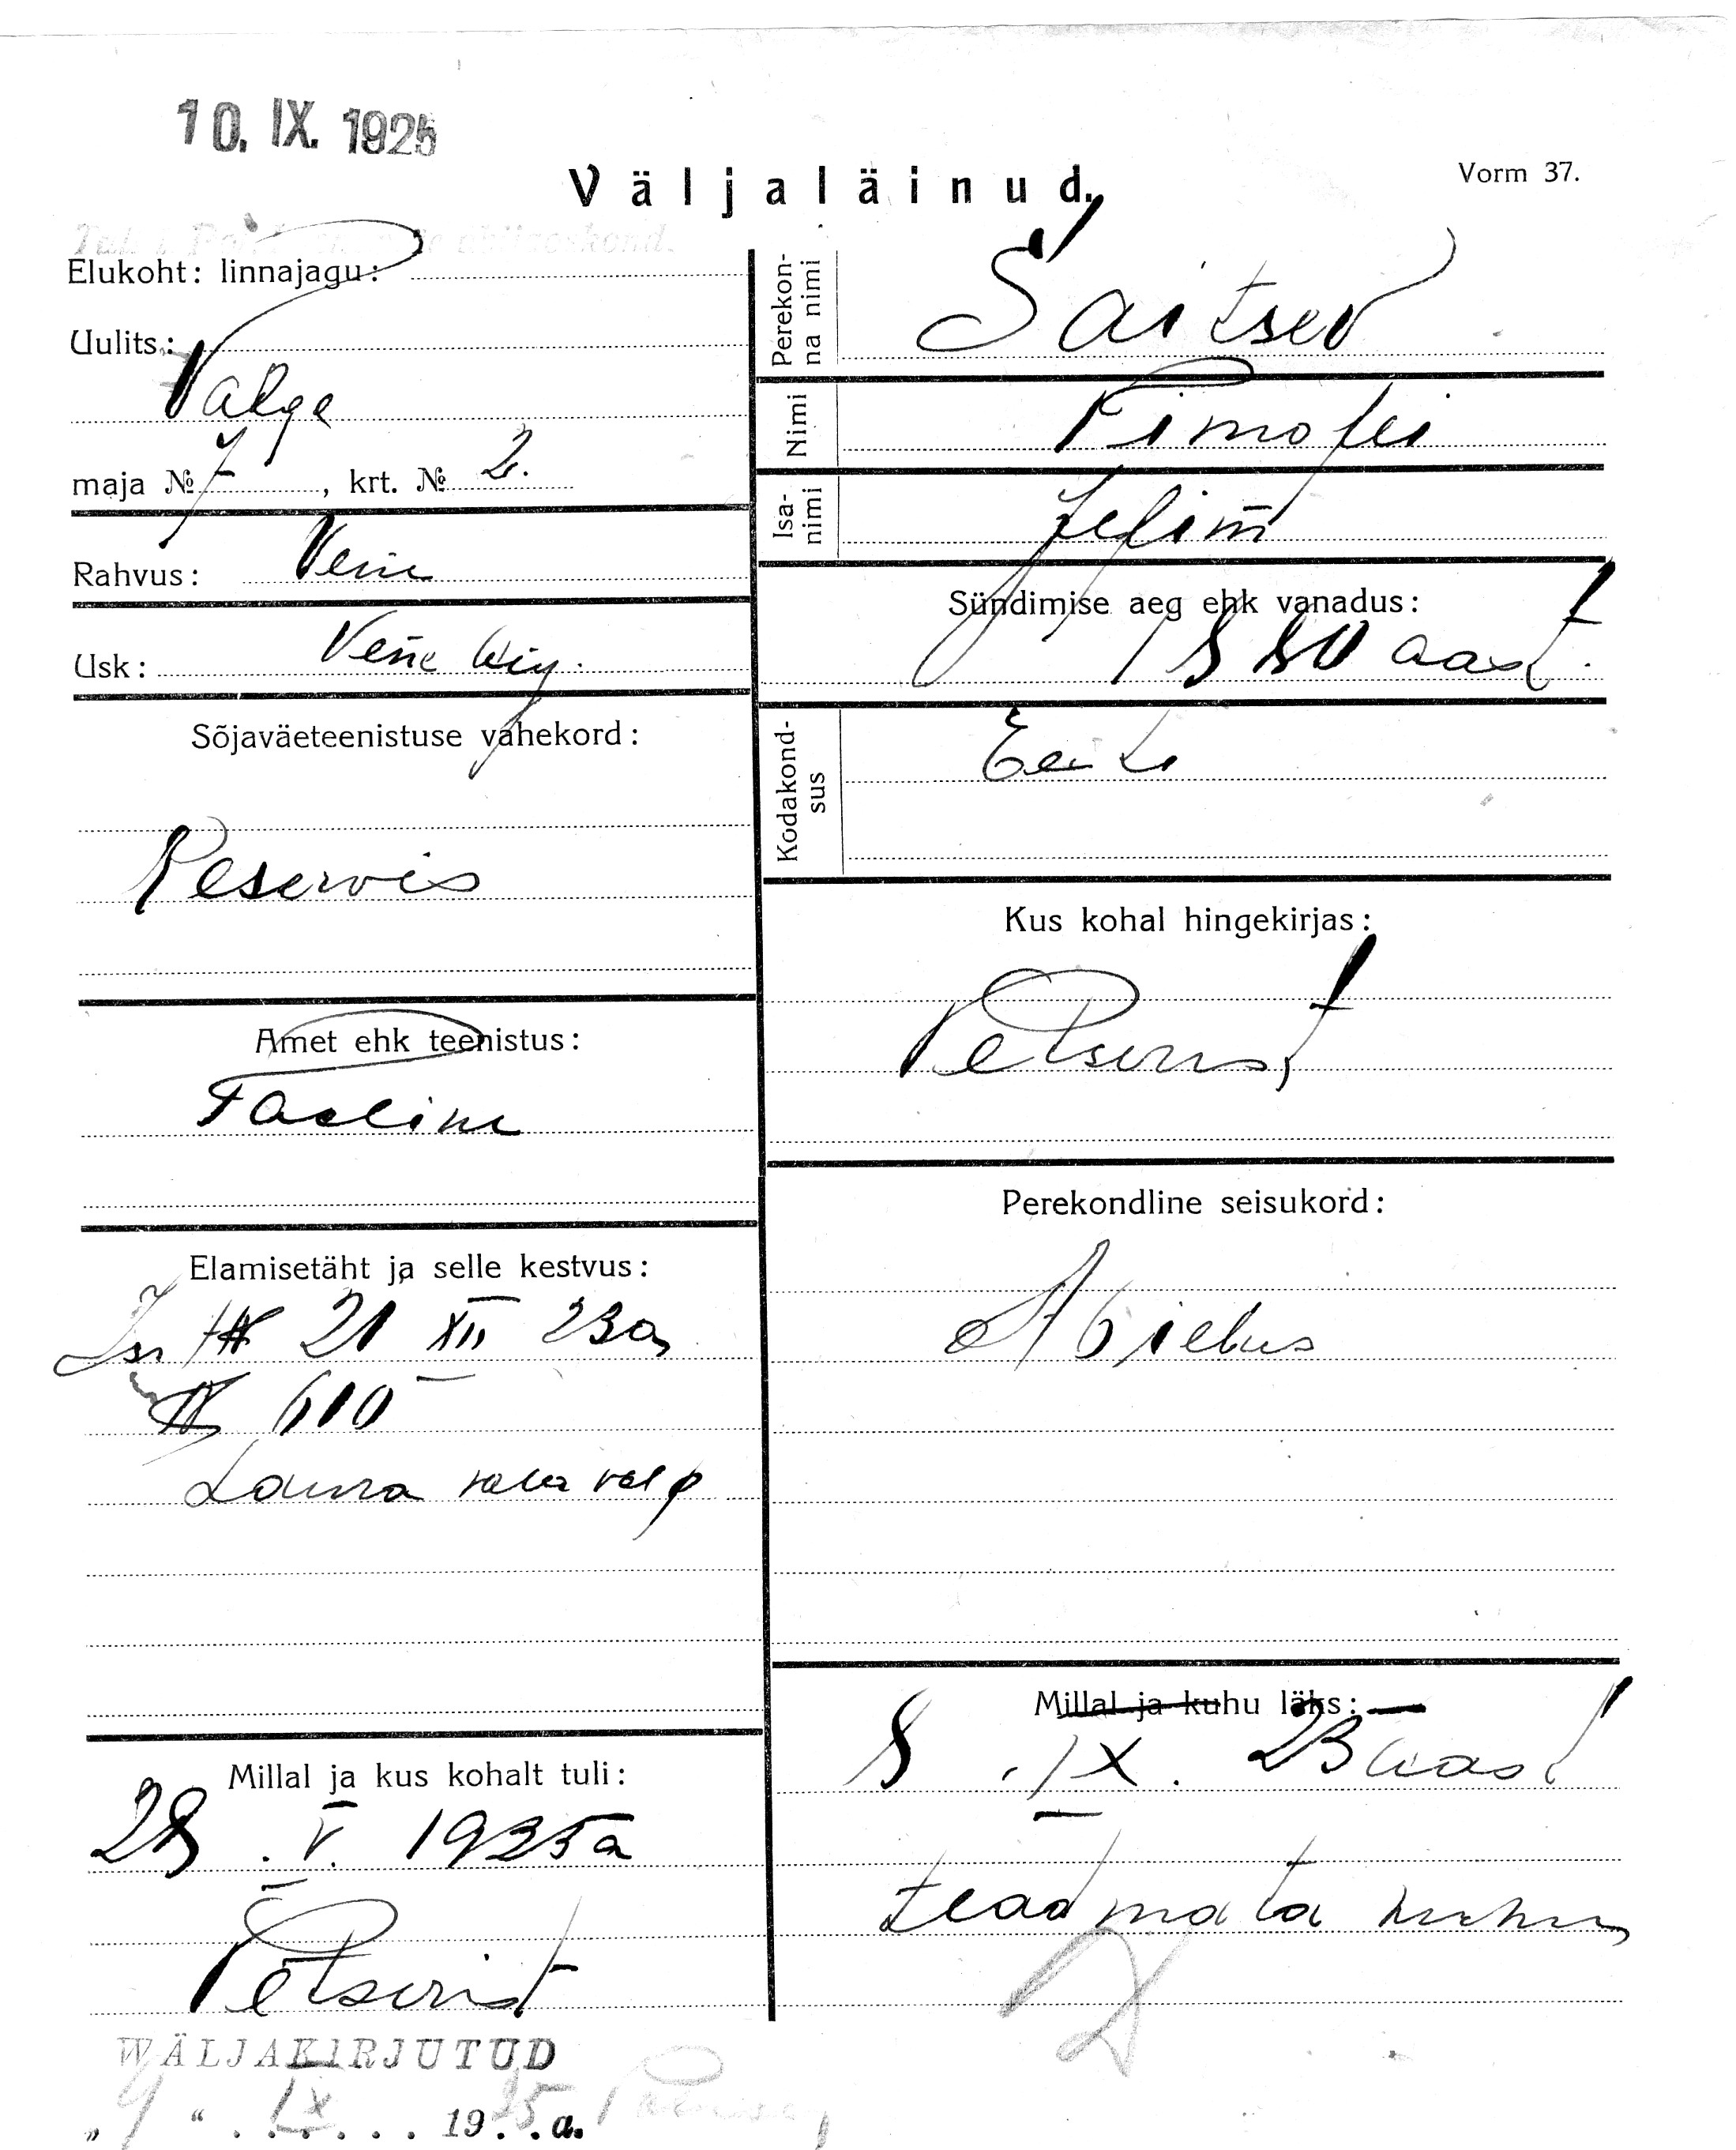 10. IX. 1925
Väljaläinud.
Vorm 37.
Elukoht: linnajagu:
Uulits:
Valge
maja № 7, krt. № 2.
Rahvus: Vene
Usk: Vene
Sõjaväeteenistuse vahekord:
Reservis
Amet ehk teenistus:
Tööline
Elamisetäht ja selle kestvus:
21 XII 23a
№ 610
Laura valla val
Millal ja kus kohalt tuli:
28. V. 1925a
Petserist
WÄLJAKIRJUTUD
„9“ IX 1925. a.
Perekonna nimi
Saitsev
Nimi
Timofei
Isanimi
Jefim
Sündimise aeg ehk vanadus:
1880 aast.
Kodakondsus
Eesti
Kus kohal hingekirjas:
Petserist
Perekondline seisukord:
Abielus
Millal ja kuhu läks:
8. IX. 25 aast
teadmata kuhu